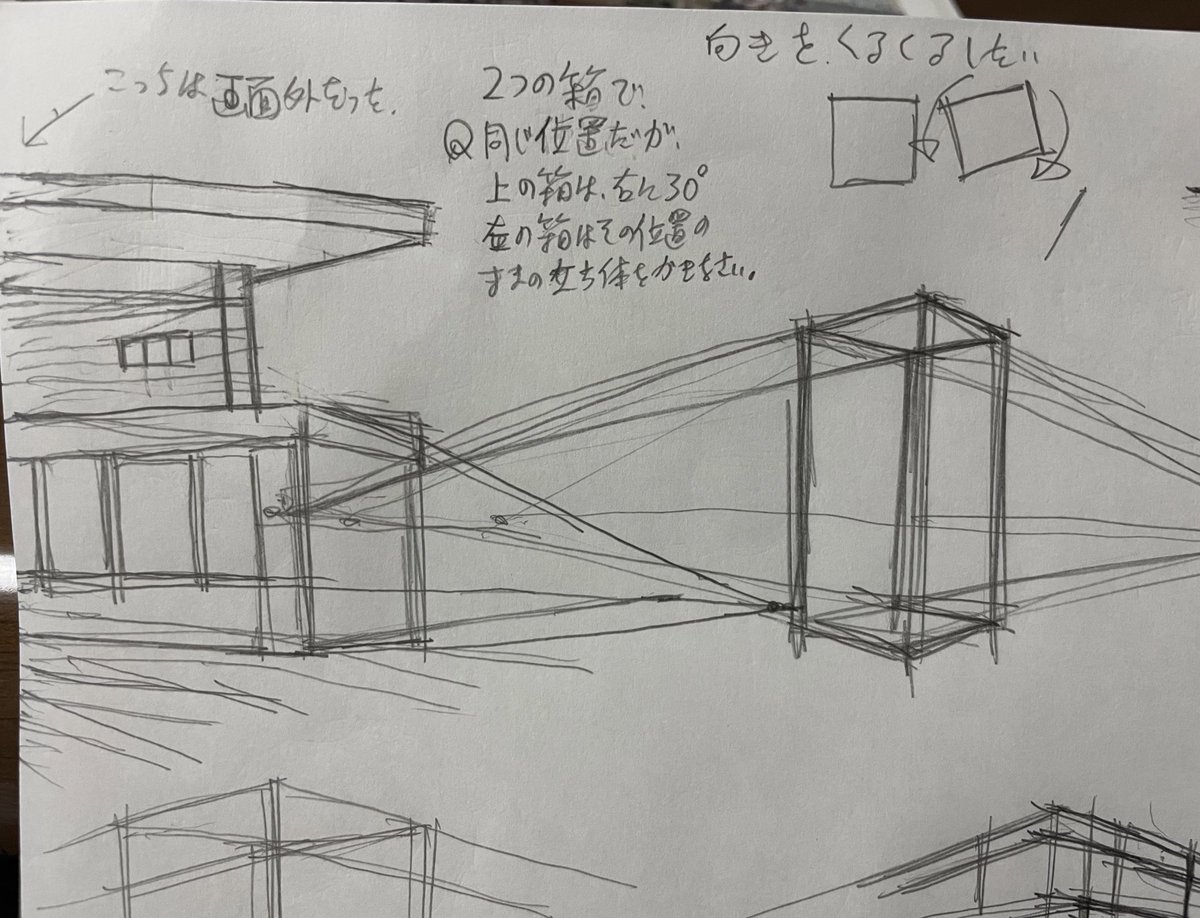 向きを、くるくるしたい
こっちは画面外だった。
2つの箱で、
Q同じ位置だが、
上の箱は、右に30°
左の箱はその位置の
ままの立ち体をかきなさい。